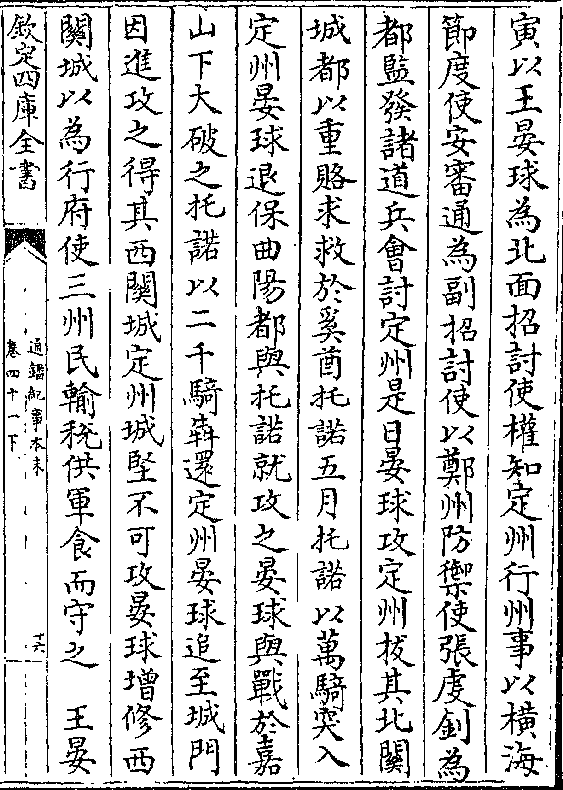 寅以王晏球為北面招討使權知定州行州事以橫海
節度使安審通為副招討使以鄭州防禦使張虔釗為
都監發諸道兵會討定州是日晏球攻定州拔其北關
城都以重賂求救於奚酋托諾五月托諾以萬騎突入
定州晏球退保曲陽都與托諾就攻之晏球與戰於嘉
山下大破之托諾以二千騎犇還定州晏球追至城門
因進攻之得其西關城定州城堅不可攻晏球增修西
關城以為行府使三州民輸稅供軍食而守之 王晏
欽定四庫全書
通鑑紀事本末
卷四十一下
十六